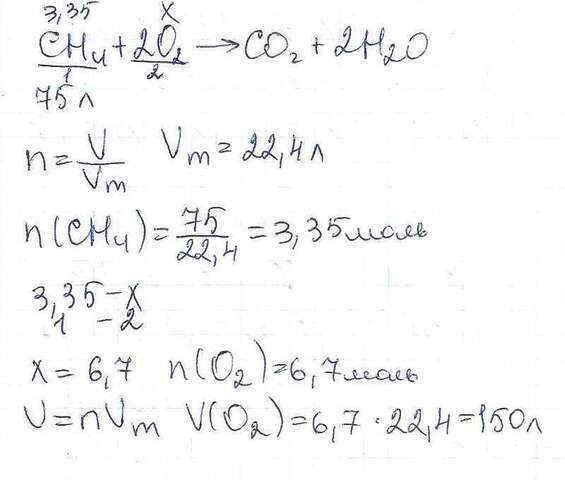 3,35 x
CH₄ + 2O₂ → CO₂ + 2H₂O
1 2
75 л
n = V/Vm Vm = 22,4 л
n(CH₄) = 75/22,4 = 3,35 моль
3,35 – x
1 – 2
x = 6,7 n(O₂) = 6,7 моль
V = nVm V(O₂) = 6,7 · 22,4 = 150 л